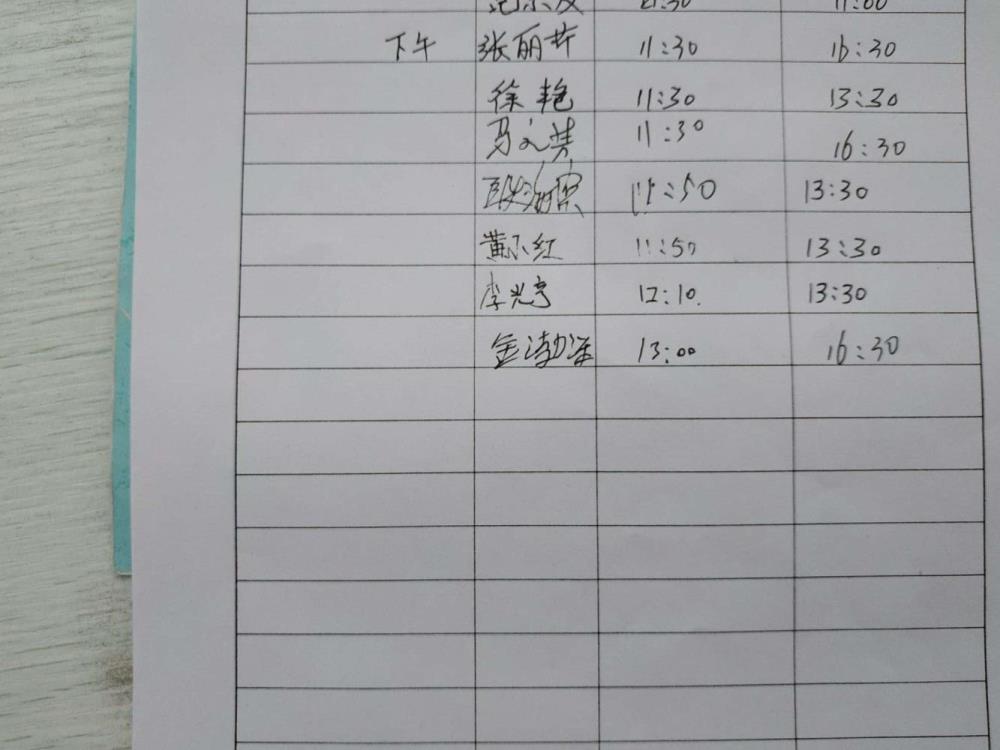 11:00
下午 张丽芹 11:30 16:30
徐艳 11:30 13:30
马文芳 11:30 16:30
11:50 13:30
黄小红 11:50 13:30
李光亨 12:10. 13:30
金渤洋 13:00 16:30